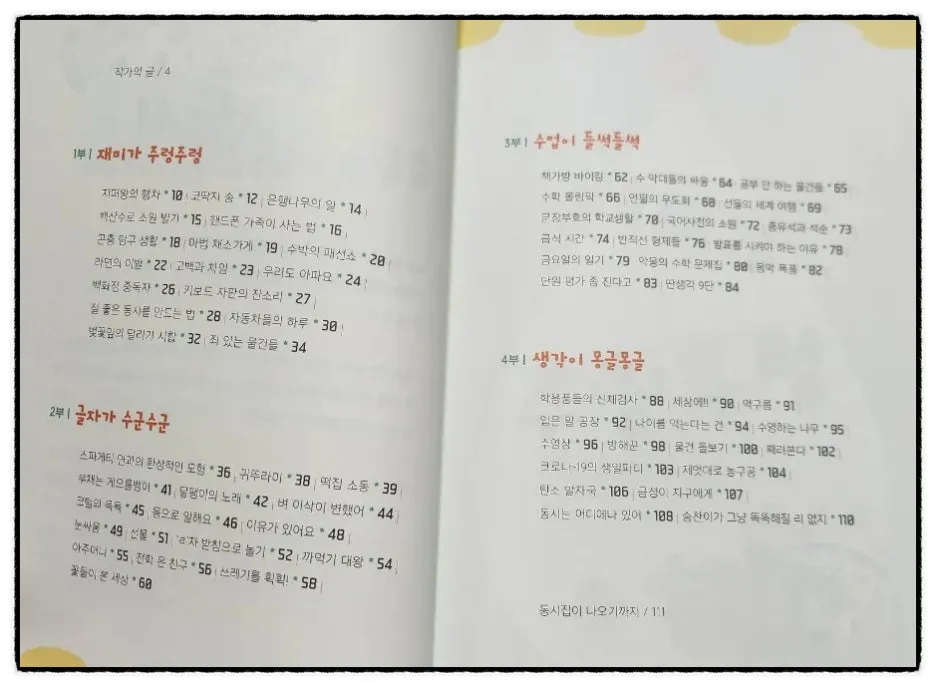 작가의 글 / 4
1부 | 재미가 주렁주렁
지퍼왕의 행차 * 10 | 코딱지 송 * 12 | 은행나무의 일 * 14 |
백산수로 소원 빌기 * 15 | 핸드폰 가족이 사는 법 * 16 |
곤충 탐구 생활 * 18 | 마법 채소가게 * 19 | 수박의 패션쇼 * 20 |
라면의 이발 * 22 | 고백과 치임 * 23 | 우리도 아파요 * 24 |
백화점 중독자 * 26 | 키보드 자판의 잔소리 * 27 |
질 좋은 동시를 만드는 법 * 28 | 자동차들의 하루 * 30 |
벚꽃잎의 달리기 시합 * 32 | 죄 있는 물건들 * 34
2부 | 글자가 수군수군
스파게티 면과의 환상적인 모험 * 36 | 귀뚜라미 * 38 | 떡집 소동 * 39 |
부채는 게으름뱅이 * 41 | 달팽이의 노래 * 42 | 벼 이삭이 변했어 * 44 |
코털의 목욕 * 45 | 몸으로 말해요 * 46 | 이유가 있어요 * 48 |
눈싸움 * 49 | 선물 * 51 | 'ㄹ'자 받침으로 놀기 * 52 | 까먹기 대왕 * 54 |
아주머니 * 55 | 전학 온 친구 * 56 | 쓰레기를 휙휙! * 58 |
꽃들이 본 세상 * 60
3부 | 수업이 들썩들썩
책가방 바이킹 * 62 | 수 막대들의 싸움 * 64 | 공부 안 하는 물건들 * 65
수학 올림픽 * 66 | 연필의 무도회 * 68 | 선들의 세계 여행 * 69
문장부호의 학교생활 * 70 | 국어사전의 소원 * 72 | 종유석과 석순 * 73
급식 시간 * 74 | 반직선 형제들 * 76 | 발표를 시켜야 하는 이유 * 78
금요일의 일기 * 79 | 악몽의 수학 문제집 * 80 | 몽막 폭풍 * 82
단원 평가 좀 진다고 * 83 | 딴생각 9단 * 84
4부 | 생각이 몽글몽글
학용품들의 신체검사 * 88 | 세상에!! * 90 | 먹구름 * 91
입은 말 공장 * 92 | 나이를 먹는다는 건 * 94 | 수영하는 나무 * 95
수영장 * 96 | 방해꾼 * 98 | 물건 돌보기 * 100 | 째려본다 * 102
코로나-19의 생일파티 * 103 | 제멋대로 농구공 * 104
탄소 발자국 * 106 | 금성이 지구에게 * 107 |
동시는 어디에나 있어 * 108 | 승찬이가 그냥 똑똑해질 리 없지 * 110
동시집이 나오기까지 / 111